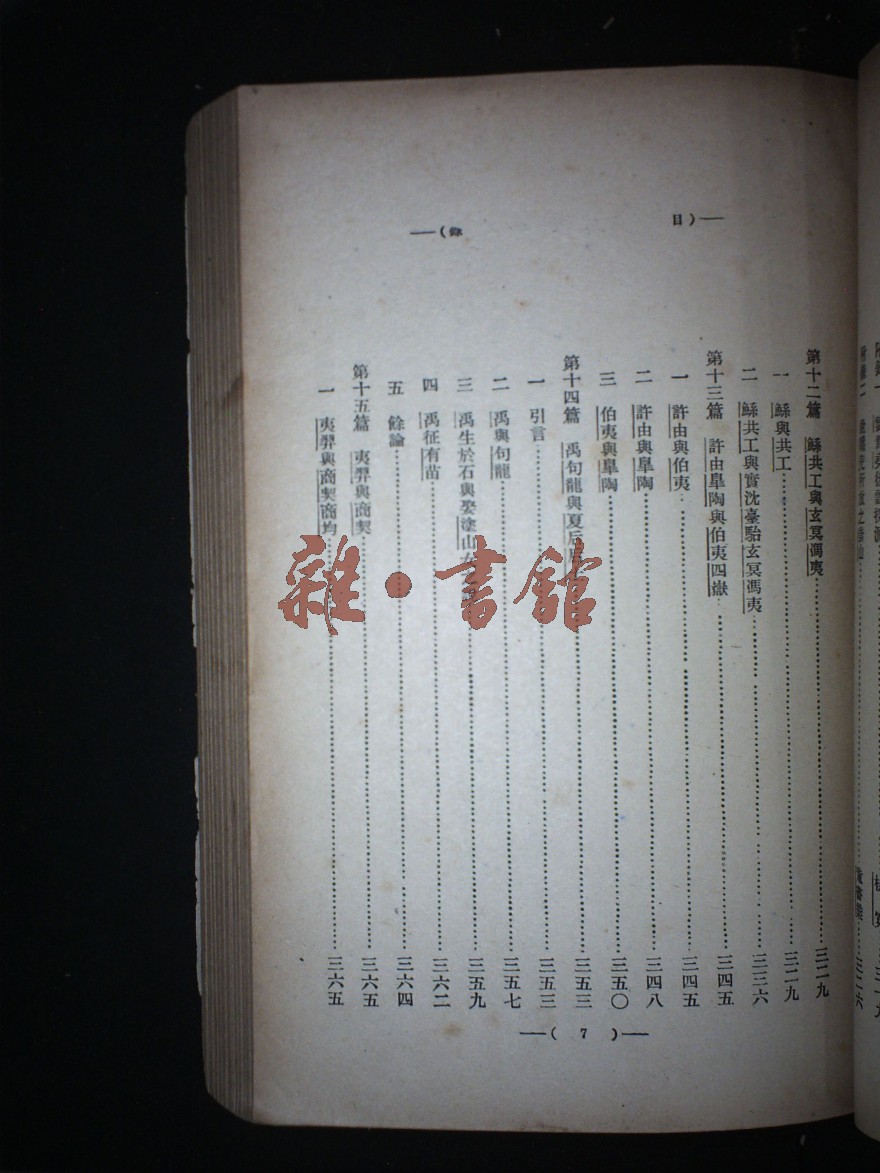 —(目 錄)—
第十二篇 鯀共工與玄冥馮夷……三二九
一 鯀與共工……三二九
二 鯀共工與實沈臺駘玄冥馮夷……三三六
第十三篇 許由皐陶與伯夷四嶽……三四五
一 許由與伯夷……三四五
二 許由與皐陶……三四八
三 伯夷與皐陶……三五〇
第十四篇 禹句龍與夏后……三五三
一 引言……三五三
二 禹與句龍……三五七
三 禹生於石與娶塗山女……三五九
四 禹征有苗……三六二
五 餘論……三六四
第十五篇 夷羿與商契……三六五
一 夷羿與商契商均……三六五
—( 7 )—
雜·書館